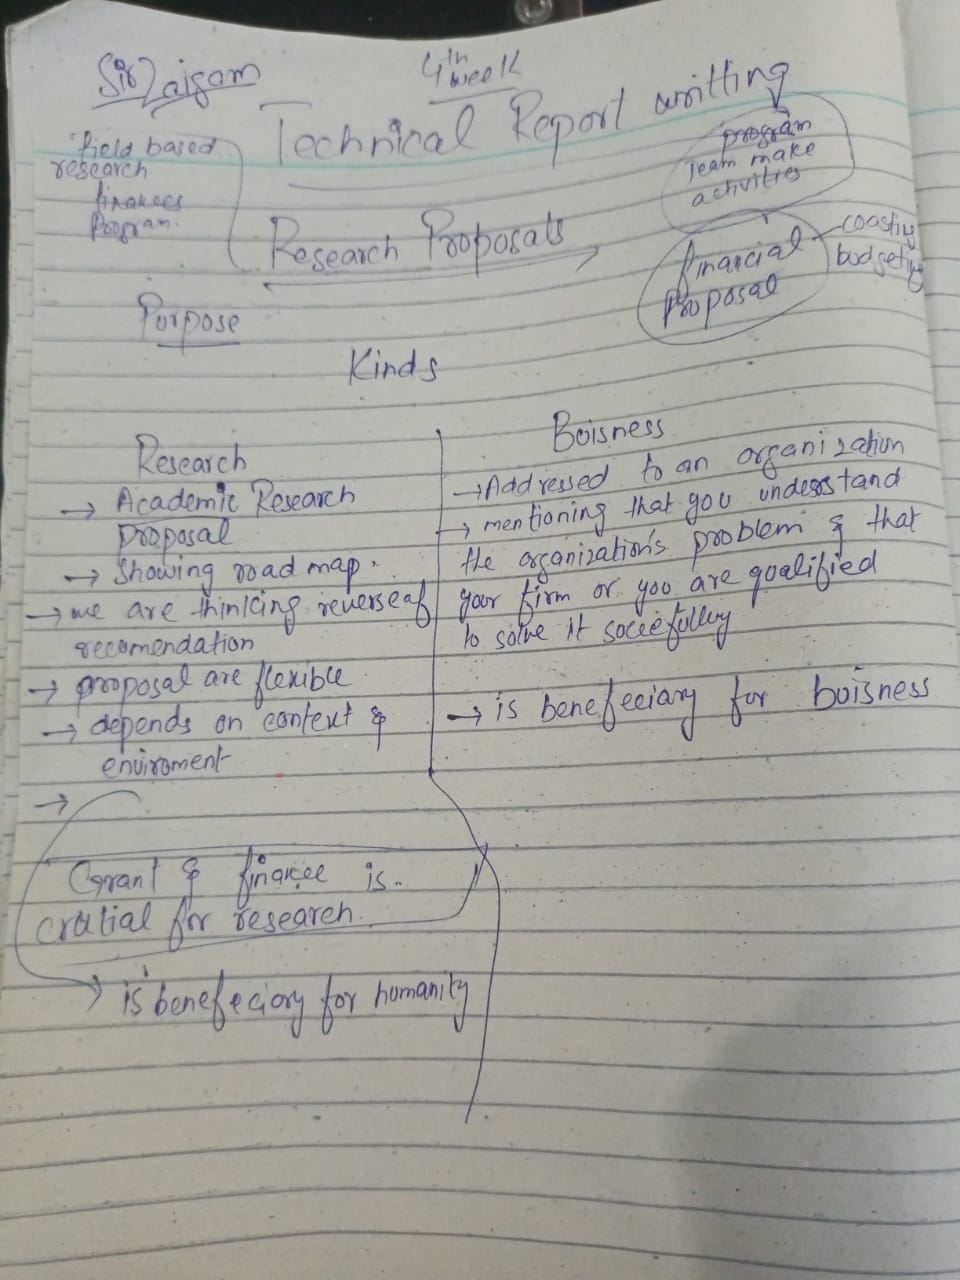 Sir Zaigam
4th week
Technical Report writting
field based
research
finances
Program.
program
Team make
activities
Research Proposals
financial
Proposal
coasting
budgeting
Purpose
Kinds
Research
→ Academic Research
proposal
→ Showing road map.
→ we are thinking reverse of
recomendation
→ proposal are flexible
→ depends on context &
enviroment
→
Grant & finance is..
crutial for research.
→ is benefeciary for humanity
Boisness
→ Addressed to an organization
→ mentioning that you understand
the organization's problem & that
your firm or you are qualified
to solve it
→ is benefeciary for boisness